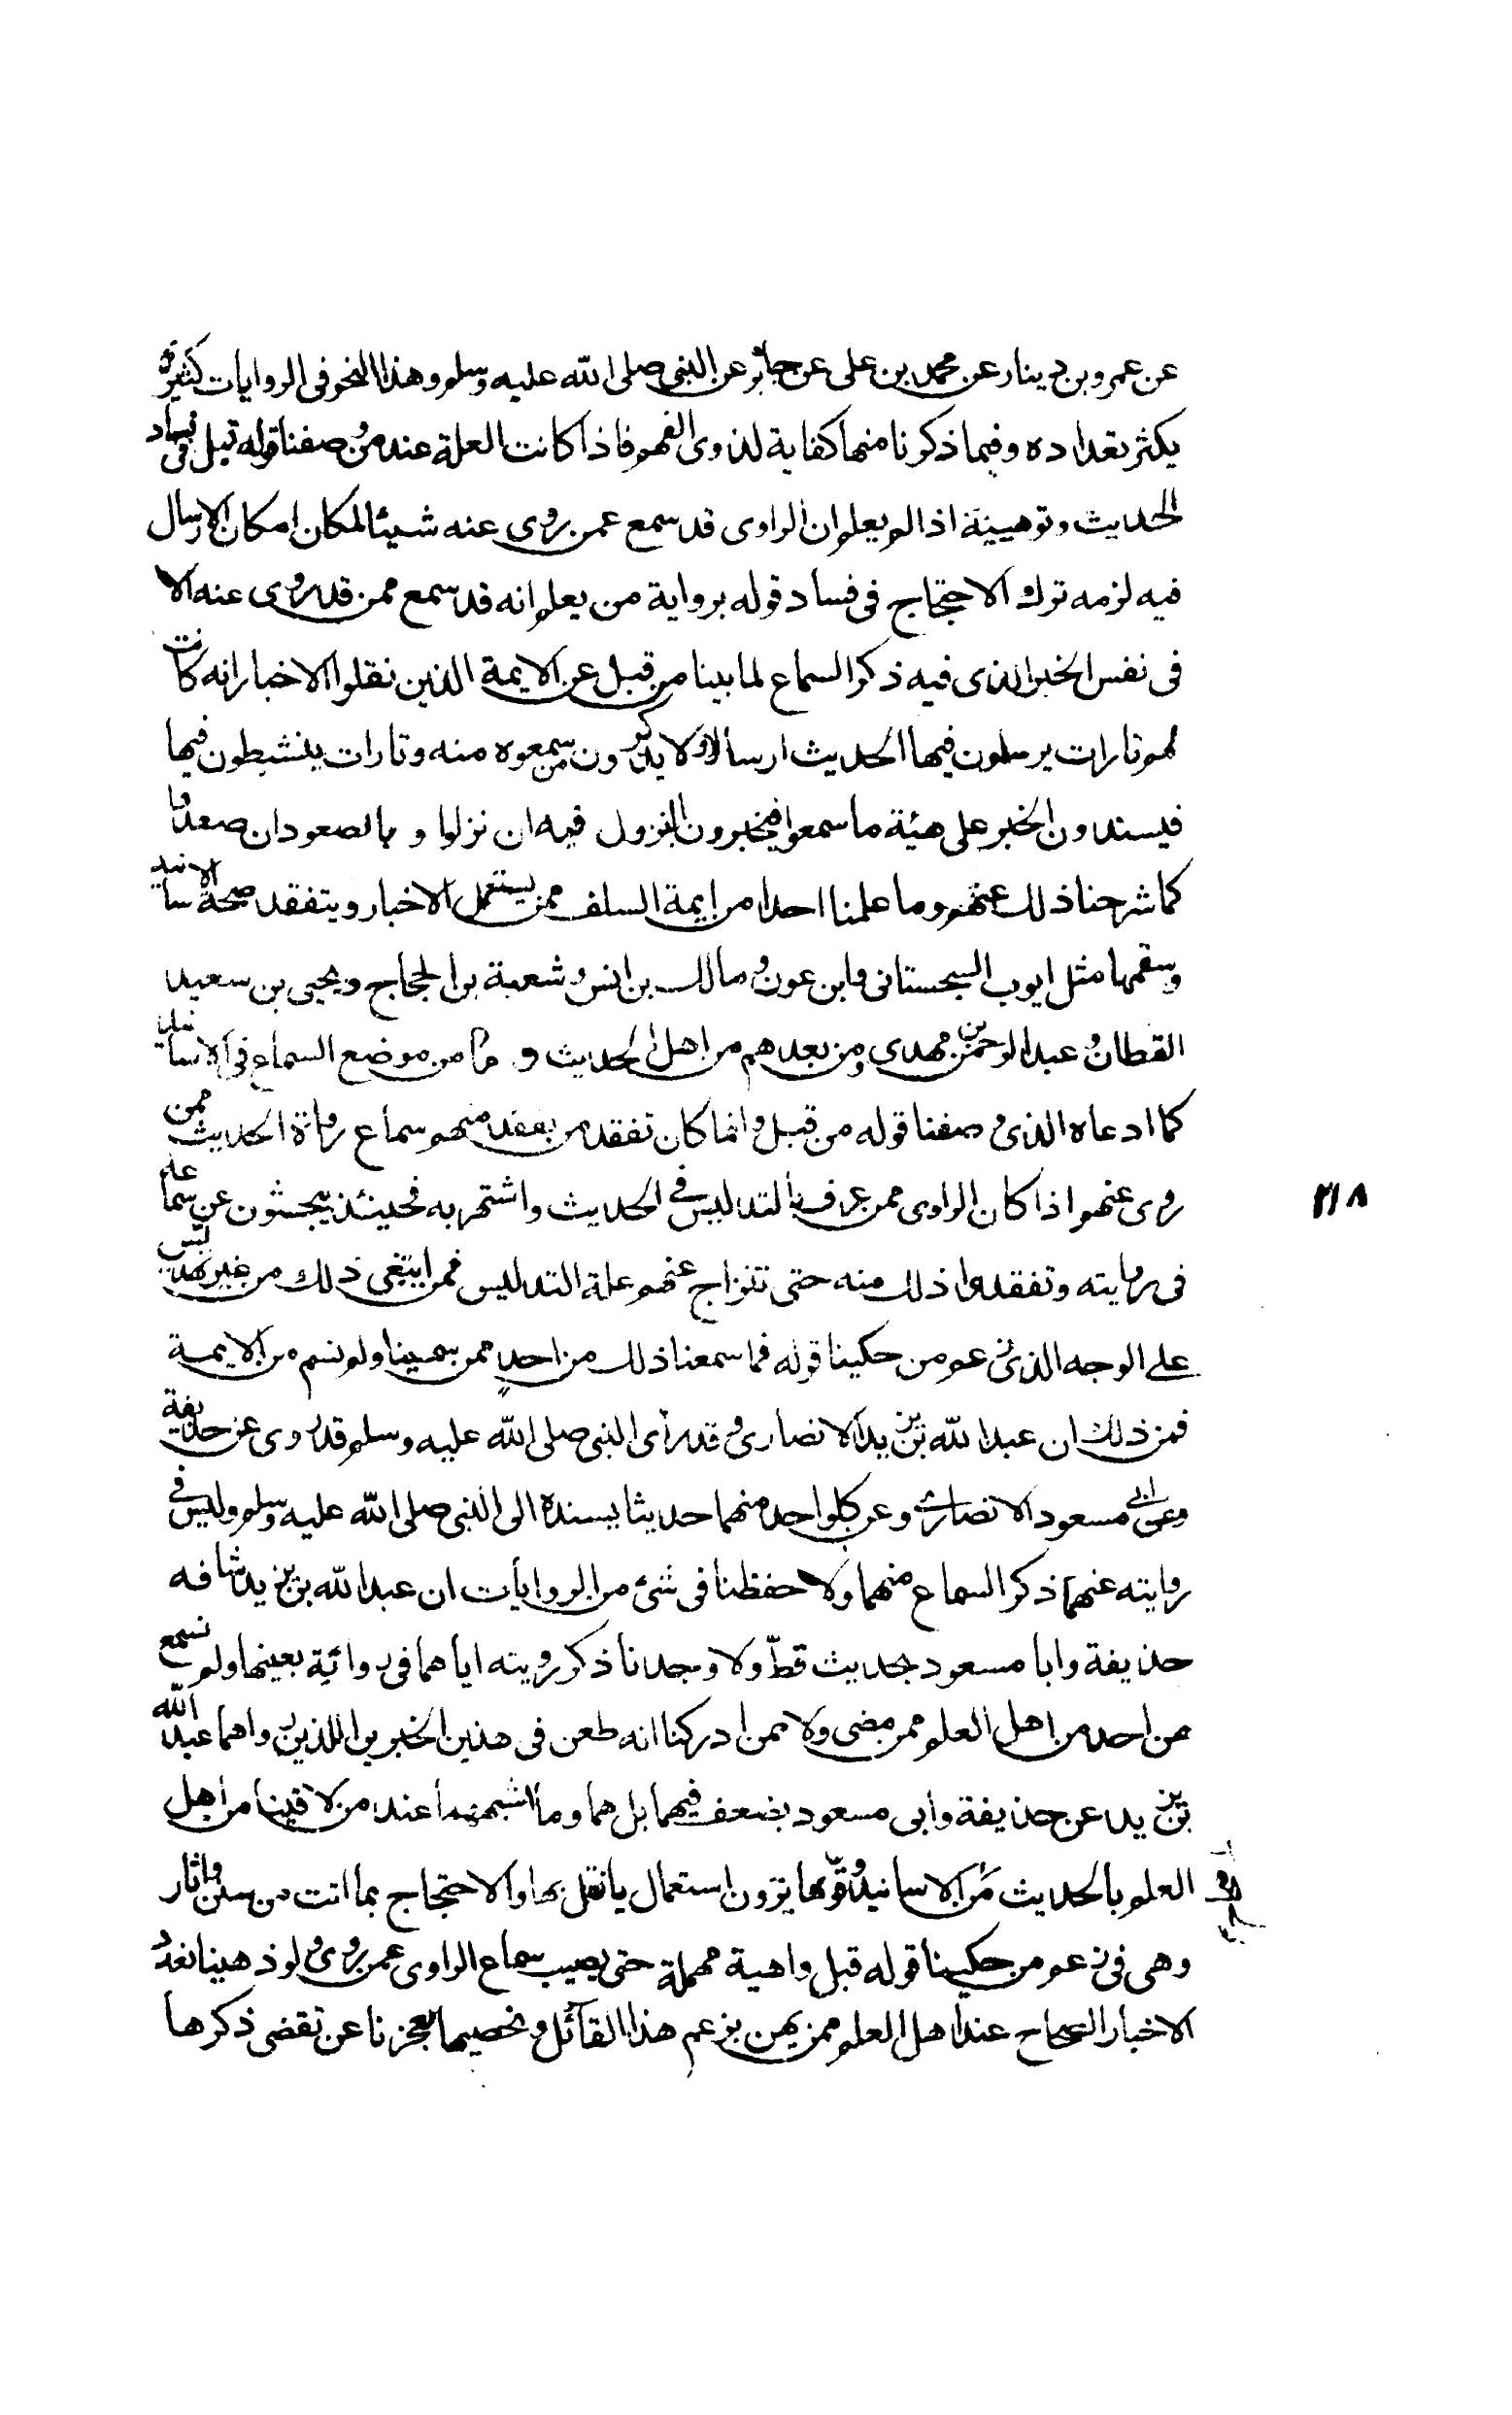 عن عمرو بن دينار عن محمد بن على عن جابر عن النبى صلى الله عليه وسلم وهذا النحو فى الروايات كثيرة
يكثر تعداده وفيما ذكرنا منها كفاية لذوى الفهم فاذا كانت العلة عند من وصفنا قوله قبل فى فساد
الحديث وتوهينه اذا لم يعلم ان الراوى قد سمع عمن روى عنه شيئا لمكان امكان الارسال
فيه لزمه ترك الاحتجاج فى فساد قوله برواية من يعلم انه قد سمع ممن قد روى عنه الا
فى نفس الخبر الذى فيه ذكر السماع لما بينا من قبل عن الايمة الذين نقلوا الاخبار انه كانت
لهم تارات يرسلون فيها الحديث ارسالا ولا يذكرون من سمعوه منه وتارات ينشطون فيها
فيسندون الخبر على هيئة ما سمعوا فيخبرون بالنزول فيه ان نزلوا و بالصعود ان صعدوا
كما شرحنا ذلك عنهم وما علمنا احدا من ايمة السلف ممن يستعمل الاخبار ويتفقد صحة الاسانيد
وسقمها مثل ايوب السجستانى وابن عون ومالك بن انس وشعبة بن الحجاج ويحيى بن سعيد
القطان وعبد الرحمن بن مهدى ومن بعدهم من اهل الحديث من موضع السماع فى الاسانيد
كما ادعاه الذى وصفنا قوله من قبل وانما كان تفقد من تفقد منهم سماع رواة الحديث ممن
روى عنهم اذا كان الراوى ممن عرف بالتدليس فى الحديث واشتهر به فحينئذ يبحثون عن سماعه
فى روايته وتفقدوا ذلك منه حتى تنزاح عنهم علة التدليس فمن ابتغى ذلك من غير مدلس
على الوجه الذى زعم من حكينا قوله فما سمعنا ذلك من احد ممن سمينا ولم نسم من الايمة
فمن ذلك ان عبد الله بن يزيد الانصارى وقد رأى النبى صلى الله عليه وسلم قد روى عن حذيفة
وعن ابى مسعود الانصارى وعن كل واحد منهما حديثا يسنده الى النبى صلى الله عليه وسلم وليس فى
روايته عنهما ذكر السماع منهما ولا حفظنا فى شئ من الروايات ان عبد الله بن يزيد شافه
حذيفة وابا مسعود بحديث قط ولا وجدنا ذكر رويته اياهما فى رواية بعينها ولم نسمع
عن احد من اهل العلم ممن مضى ولا ممن ادركنا انه طعن فى هذين الخبرين اللذين رواهما عبد الله
بن يزيد عن حذيفة وابى مسعود بضعف فيهما بل هما وما اشبههما عند من لاقينا من اهل
العلم بالحديث من الاسانيد وقويها يرون استعمال ما نقل بها والاحتجاج بما اتت من سنن واثار
وهى فى زعم من حكينا قوله قبل واهية مهملة حتى يصيب سماع الراوى عمن روى ولو ذهبنا نعدد
الاخبار الصحاح عند اهل العلم ممن يهن بزعم هذا القائل ونحصيها لعجزنا عن تقضى ذكرها
٢١٨